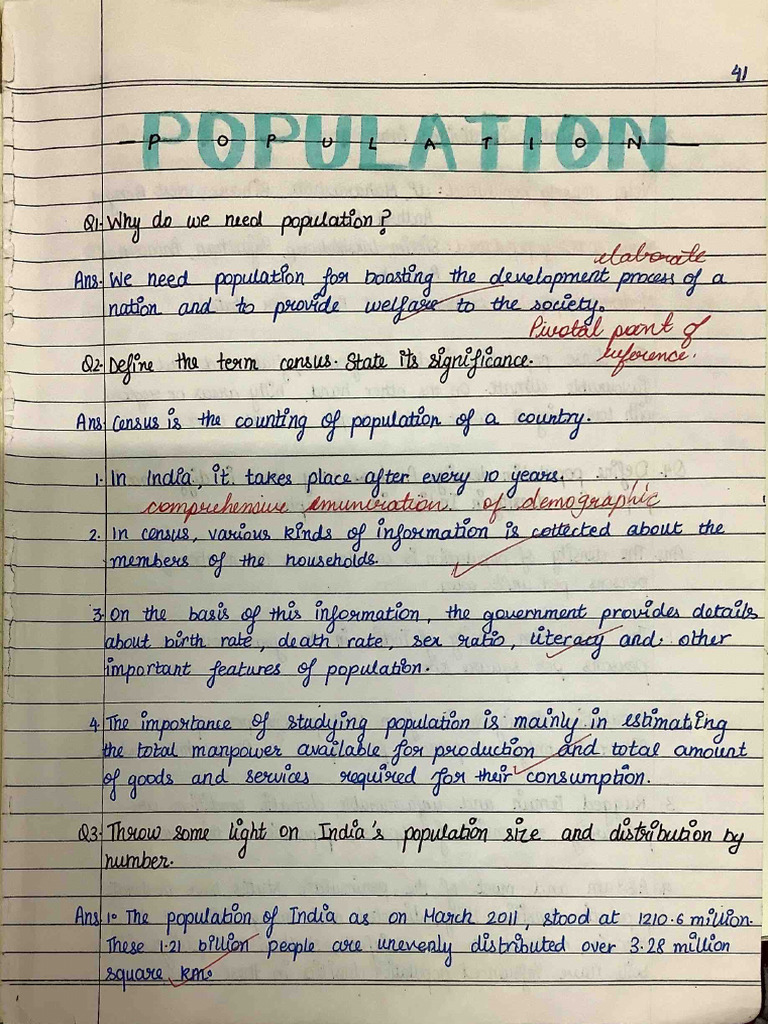 41
POPULATION
POPULATION
Q1. Why do we need population?
elaborate
Ans. We need population for boosting the development process of a
nation and to provide welfare to the society.
Pivotal point of
reference.
Q2. Define the term census. State its significance.
Ans. Census is the counting of population of a country.
1. In India, it takes place after every 10 years.
comprehensive emuniration of demographic
2. In census, various kinds of information is collected about the
members of the households.
3. On the basis of this information, the government provides details
about birth rate, death rate, sex ratio, literacy and other
important features of population.
4. The importance of studying population is mainly in estimating
the total manpower available for production and total amount
of goods and services required for their consumption.
Q3. Throw some light on India's population size and distribution by
number.
Ans. 1. The population of India as on March 2011, stood at 1210.6 million.
These 1.21 billion people are unevenly distributed over 3.28 million
square km.